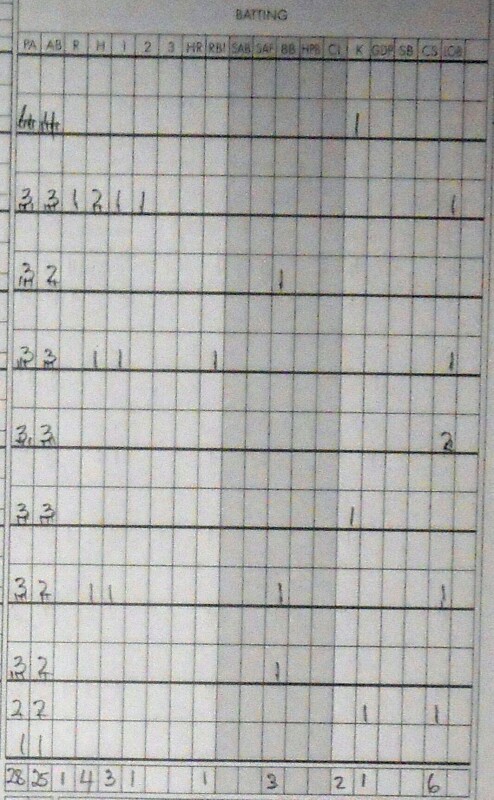 BATTING
PA AB R H 1 2 3 HR RBI SAB SAF BB HPB CI K GDP SB CS LOB
4 4 1
3 3 1 2 1 1 1
3 2 1
3 3 1 1 1 1
3 3 2
3 3 1
3 2 1 1 1 1
3 2 1
2 2 1 1
1 1
28 25 1 4 3 1 1 3 2 1 6